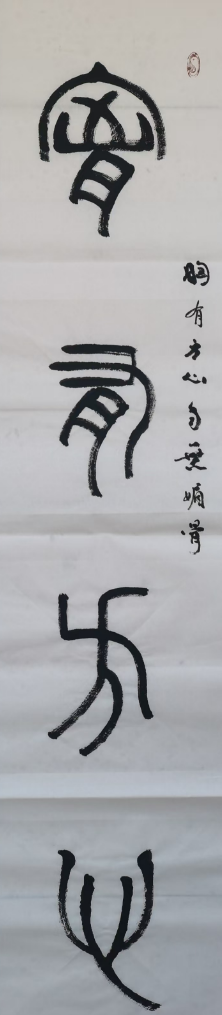 胸有方心
胸有方心自无媚骨